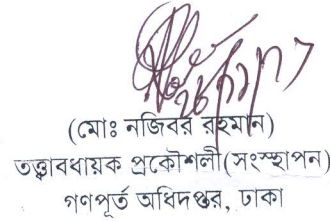 (মোঃ নজিবর রহমান)
তত্ত্বাবধায়ক প্রকৌশলী(সংস্হাপন)
গণপূর্ত অধিদপ্তর, ঢাকা